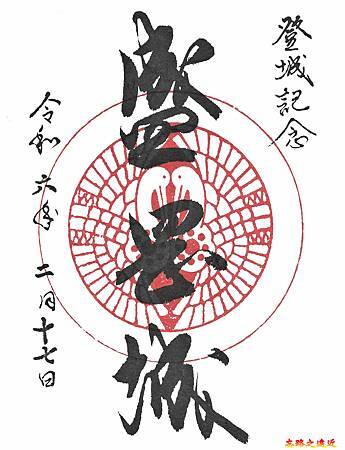 登城記念
盛岡城
令和六年 二月十七日
忘路之遠近